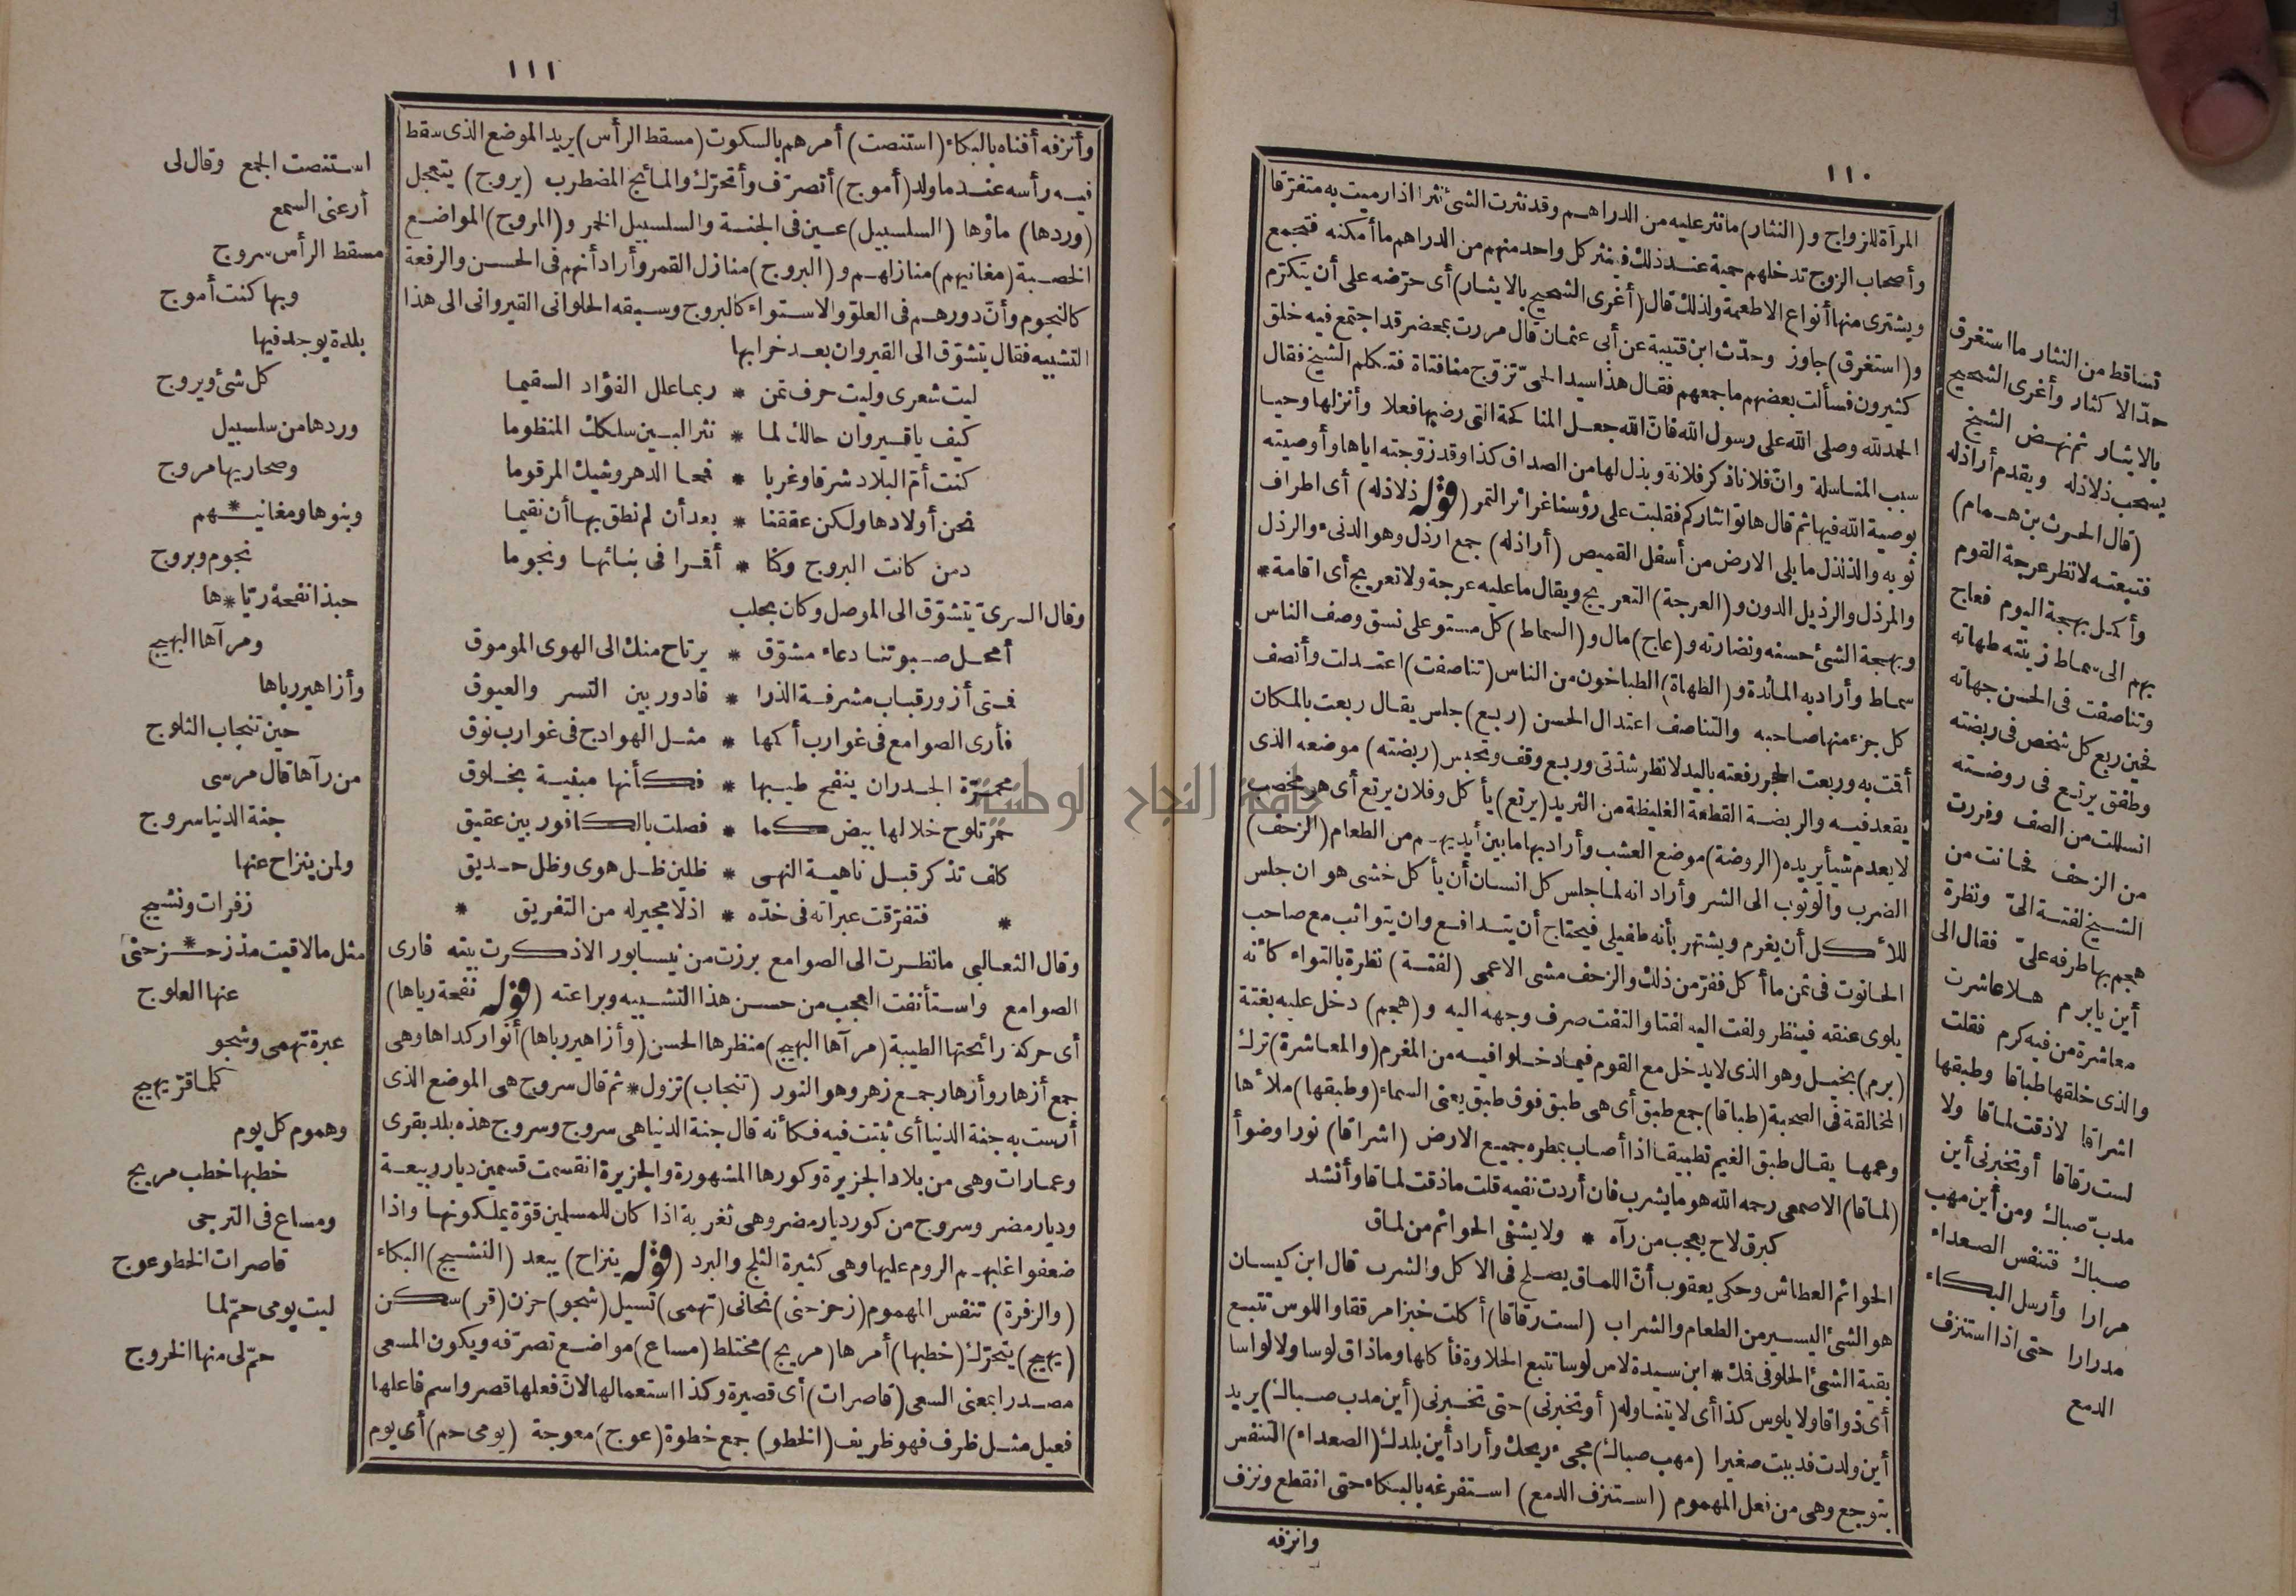 ١١٠
المرآة للزواج و(النثار) ما نثر عليه من الدراهم وقد نثرت الشئ نثرا اذا رميت به متفرقا
وأصحاب الزوج تدخلهم حمية عند ذلك فينثر كل واحد منهم من الدراهم ما أمكنه فتجمع
ويشترى منها أنواع الاطعمة ولذلك قال (أغرى الشحيح بالايثار) أى حرّضه على أن يتكرّم
و(استغرق) جاوز وحدّث ابن قتيبة عن أبى عثمان قال مررت بمحضر قد اجتمع فيه خلق
كثيرون فسألت بعضهم ما جمعهم فقال هذا سيد الحىّ تزوّج منا فتاة فتكلم الشيخ فقال
الحمد لله وصلى الله على رسول الله فانّ الله جعل المناكحة التى رضيها فعلا وأنزلها وحيا
سبب المناسلة وانّ فلانا ذكر فلانة وبذل لها من الصداق كذا وقد زوّجته اياها وأوصيته
بوصية الله فيها ثم قال هاتوا نثاركم فقلبت على رؤسنا غرائر التمر (قوله ذلاذله) أى اطراف
ثوبه والذلذل ما يلى الارض من أسفل القميص (أراذله) جمع ارذل وهو الدنىء والرذل
والمرذل والرذيل الدون و(العرجة) التعريج ويقال ما عليه عرجة ولا تعريج أى اقامة *
وبهجة الشئ حسنه ونضارته و(عاج) مال و(السماط) كل مستو على نسق وصف الناس
سماط وأراد به المائدة و(الطهاة) الطباخون من الناس (تناصفت) اعتدلت وأنصف
كل جزء منها صاحبه والتناصف اعتدال الحسن (ربع) جلس يقال ربعت بالمكان
أقمت به وربعت الحجر رفعته باليد لانظر شدّتى وربع وقف وتحبس (ربضته) موضعه الذى
يقعد فيه والربضة القطعة الغليظة من الثريد (يرتع) يأكل وفلان يرتع أى هو مخصب
لا يعدم شيأ يريده (الروضة) موضع العشب وأراد بها ما بين أيديهم من الطعام (الزحف)
الضرب والوثوب الى الشر وأراد انه لما جلس كل انسان أن يأكل خشى هو ان جلس
للأكل أن يغرم ويشتهر بأنه طفيلى فيحتاج أن يتدافع وان يتواثب مع صاحب
الحانوت فى ثمن ما أكل ففرّ من ذلك والزحف مشى الاعمى (لفتة) نظرة بالتواء كأنه
يلوى عنقه فينظر ولفت اليه لفتا والتفت صرف وجهه اليه و(هجم) دخل عليه بغتة
(برم) بخيل وهو الذى لا يدخل مع القوم فيما دخلوا فيه من المغرم (والمعاشرة) ترك
المخالفة فى الصحبة (طباقا) جمع طبق أى هى طبق فوق طبق يعنى السماء (وطبقها) ملأها
وعمها يقال طبق الغيم تطبيقا اذا أصاب بمطره جميع الارض (اشراقا) نورا وضوأ
(لماقا) الاصمعى رحمه الله هو ما يشرب فان أردت نفيه قلت ما ذقت لماقا وأنشد
كبرق لاح يعجب من رآه * ولا يشفى الحوائم من لماق
الحوائم العطاش وحكى يعقوب أنّ اللماق يصلح فى الاكل والشرب قال ابن كيسان
هو الشئ اليسير من الطعام والشراب (لست رقاقا) أكلت خبزا مرققا واللوس تتبع
بقية الشئ الحلو فى فك * ابن سيدة لاس لوسا تتبع الحلاوة فأكلها وما ذاق لوسا ولا لواسا
أى ذواقا ولا يلوس كذا أى لا يتناوله (أو تخبرنى) حتى تخبرنى (أين مدب صباك) يريد
أين ولدت فدببت صغيرا (مهب صباك) مجىء ريحك وأراد أين بلدك (الصعداء) التنفس
بتوجع وهى من فعل المهموم (استنزف الدمع) استفرغه بالبكاء حتى انقطع ونزف
وانزفه
تساقط من النثار ما استغرق
حدّ الاكثار وأغرى الشحيح
بالايثار ثم نهض الشيخ
يسحب ذلاذله ويقدم أراذله
(قال الحرث بن همام)
فتبعته لانظر عرجة القوم
وأكمل بهجة اليوم فعاج
بهم الى سماط زينته طهاته
وتناصفت فى الحسن جهاته
فحين ربع كل شخص فى ربضته
وطفق يرتع فى روضته
انسللت من الصف وفررت
من الزحف فحانت من
الشيخ لفتة الىّ ونظرة
هجم بها طرفه علىّ فقال الى
أين يا برم هلا عاشرت
معاشرة من فيه كرم فقلت
والذى خلقها طباقا وطبقها
اشراقا لا ذقت لماقا ولا
لست رقاقا أو تخبرنى أين
مدبّ صباك ومن أين مهب
صباك فتنفس الصعداء
مرارا وأرسل البكاء
مدرارا حتى اذا استنزف
الدمع
١١١
وأنزفه أفناه بالبكاء (استنصت) أمرهم بالسكوت (مسقط الرأس) يريد الموضع الذى سقط
فيه رأسه عند ما ولد (أموج) أتصرّف وأتحرّك والمائج المضطرب (يروج) يتعجل
(وردها) ماؤها (السلسبيل) عين فى الجنة والسلسبيل الخمر و(المروج) المواضع
الخصبة (مغانيهم) منازلهم و(البروج) منازل القمر وأراد أنهم فى الحسن والرفعة
كالنجوم وأنّ دورهم فى العلوّ والاستواء كالبروج وسبقه الحلوانى القيروانى الى هذا
التشبيه فقال يتشوّق الى القيروان بعد خرابها
ليت شعرى وليت حرف تمن * ربما علل الفؤاد السقيما
كيف يا قيروان حالك لما * نثر البين سلكك المنظوما
كنت أمّ البلاد شرقا وغربا * فمحا الدهر وشيك المرقوما
نحن أولادها ولكن عققنا * بعد أن لم نطق بها أن نقيما
دمن كانت البروج وكنا * أقمرا فى بنائها ونجوما
وقال السرىّ يتشوّق الى الموصل وكان بحلب
أمحل صبوتنا دعاء مشوّق * يرتاح منك الى الهوى الموموق
فمتى أزور قباب مشرفة الذرا * فادور بين النسر والعيوق
فأرى الصوامع فى غوارب أكمها * مثل الهوادج فى غوارب نوق
محمرّة الجدران ينفح طيبها * فكأنها مبنية بخلوق
حمر تلوح خلالها بيض كما * فصلت بالكافور بين عقيق
كلف تذكر قبل ناهية النهى * ظلين ظل هوى وظل حديق
* فتفرّقت عبراته فى خدّه * اذ لا مجير له من التفريق *
وقال الثعالبى ما نظرت الى الصوامع برزت من نيسابور الا ذكرت بيته فارى
الصوامع واستأنفت العجب من حسن هذا التشبيه وبراعته (قوله نفحة رياها)
أى حركة رائحتها الطيبة (مرآها البهيج) منظرها الحسن (وأزاهير رباها) أنوار كداها وهى
جمع أزهار وأزهار جمع زهر وهو النور (تنجاب) تزول * ثم قال سروج هى الموضع الذى
أرست به جنة الدنيا أى ثبتت فيه فكأنه قال جنة الدنيا هى سروج وسروج هذه بلد بقرى
وعمارات وهى من بلاد الجزيرة وكورها المشهورة والجزيرة انقسمت قسمين ديار ربيعة
وديار مضر وسروج من كور ديار مضر وهى ثغرية اذا كان للمسلمين قوّة يملكونها واذا
ضعفوا غلبهم الروم عليها وهى كثيرة الثلج والبرد (قوله ينزاح) يبعد (النشيج) البكاء
(والزفرة) تنفس المهموم (زحزحنى) نحانى (تهمى) تسيل (شجو) حزن (قر) سكن
(يهيج) يتحرّك (خطبها) أمرها (مريج) مختلط (مساع) مواضع تصرّفه ويكون المسعى
مصدرا بمعنى السعى (قاصرات) أى قصيرة وكذا استعمالها لانّ فعلها قصر واسم فاعلها
فعيل مثل ظرف فهو ظريف (الخطو) جمع خطوة (عوج) معوجة (يومى حم) أى يوم
استنصت الجمع وقال لى
أرعنى السمع
مسقط الرأس سروج
وبها كنت أموج
بلدة يوجد فيها
كل شئ ويروج
وردها من سلسبيل
وصحاريها مروج
وبنوها ومغانيهم *
نجوم وبروج
حبذا نفحة ريّا * ها
ومرآها البهيج
وأزاهير رباها
حين تنجاب الثلوج
من رآها قال مرسى
جنة الدنيا سروج
ولمن ينزاح عنها
زفرات ونشيج
مثل ما لاقيت مذ زحـ * ـزحنى
عنها العلوج
عبرة تهمى وشجو
كلما قرّ يهيج
وهموم كل يوم
خطبها خطب مريج
ومساع فى الترجى
قاصرات الخطو عوج
ليت يومى حمّ لما
حمّ لى منها الخروج
جامعة النجاح الوطنية